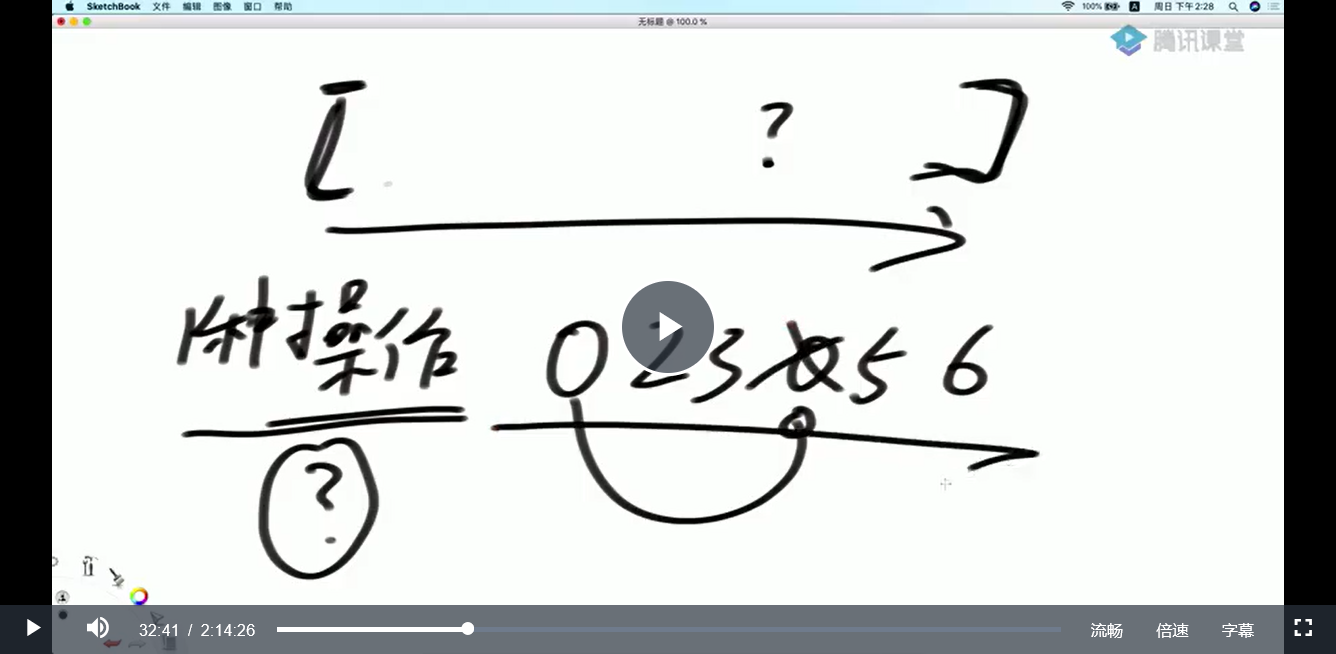 SketchBook 文件 编辑 图像 窗口 帮助 100% A 周日 下午2:28
无标题 @ 100.0 %
腾讯课堂
[ ? ]
种操作 0 2 3 5 6
?
32:41 / 2:14:26 流畅 倍速 字幕